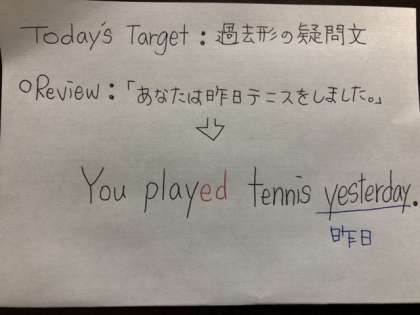 Today's Target：過去形の疑問文
○Review：「あなたは昨日テニスをしました。」
⇩
You played tennis yesterday.
昨日